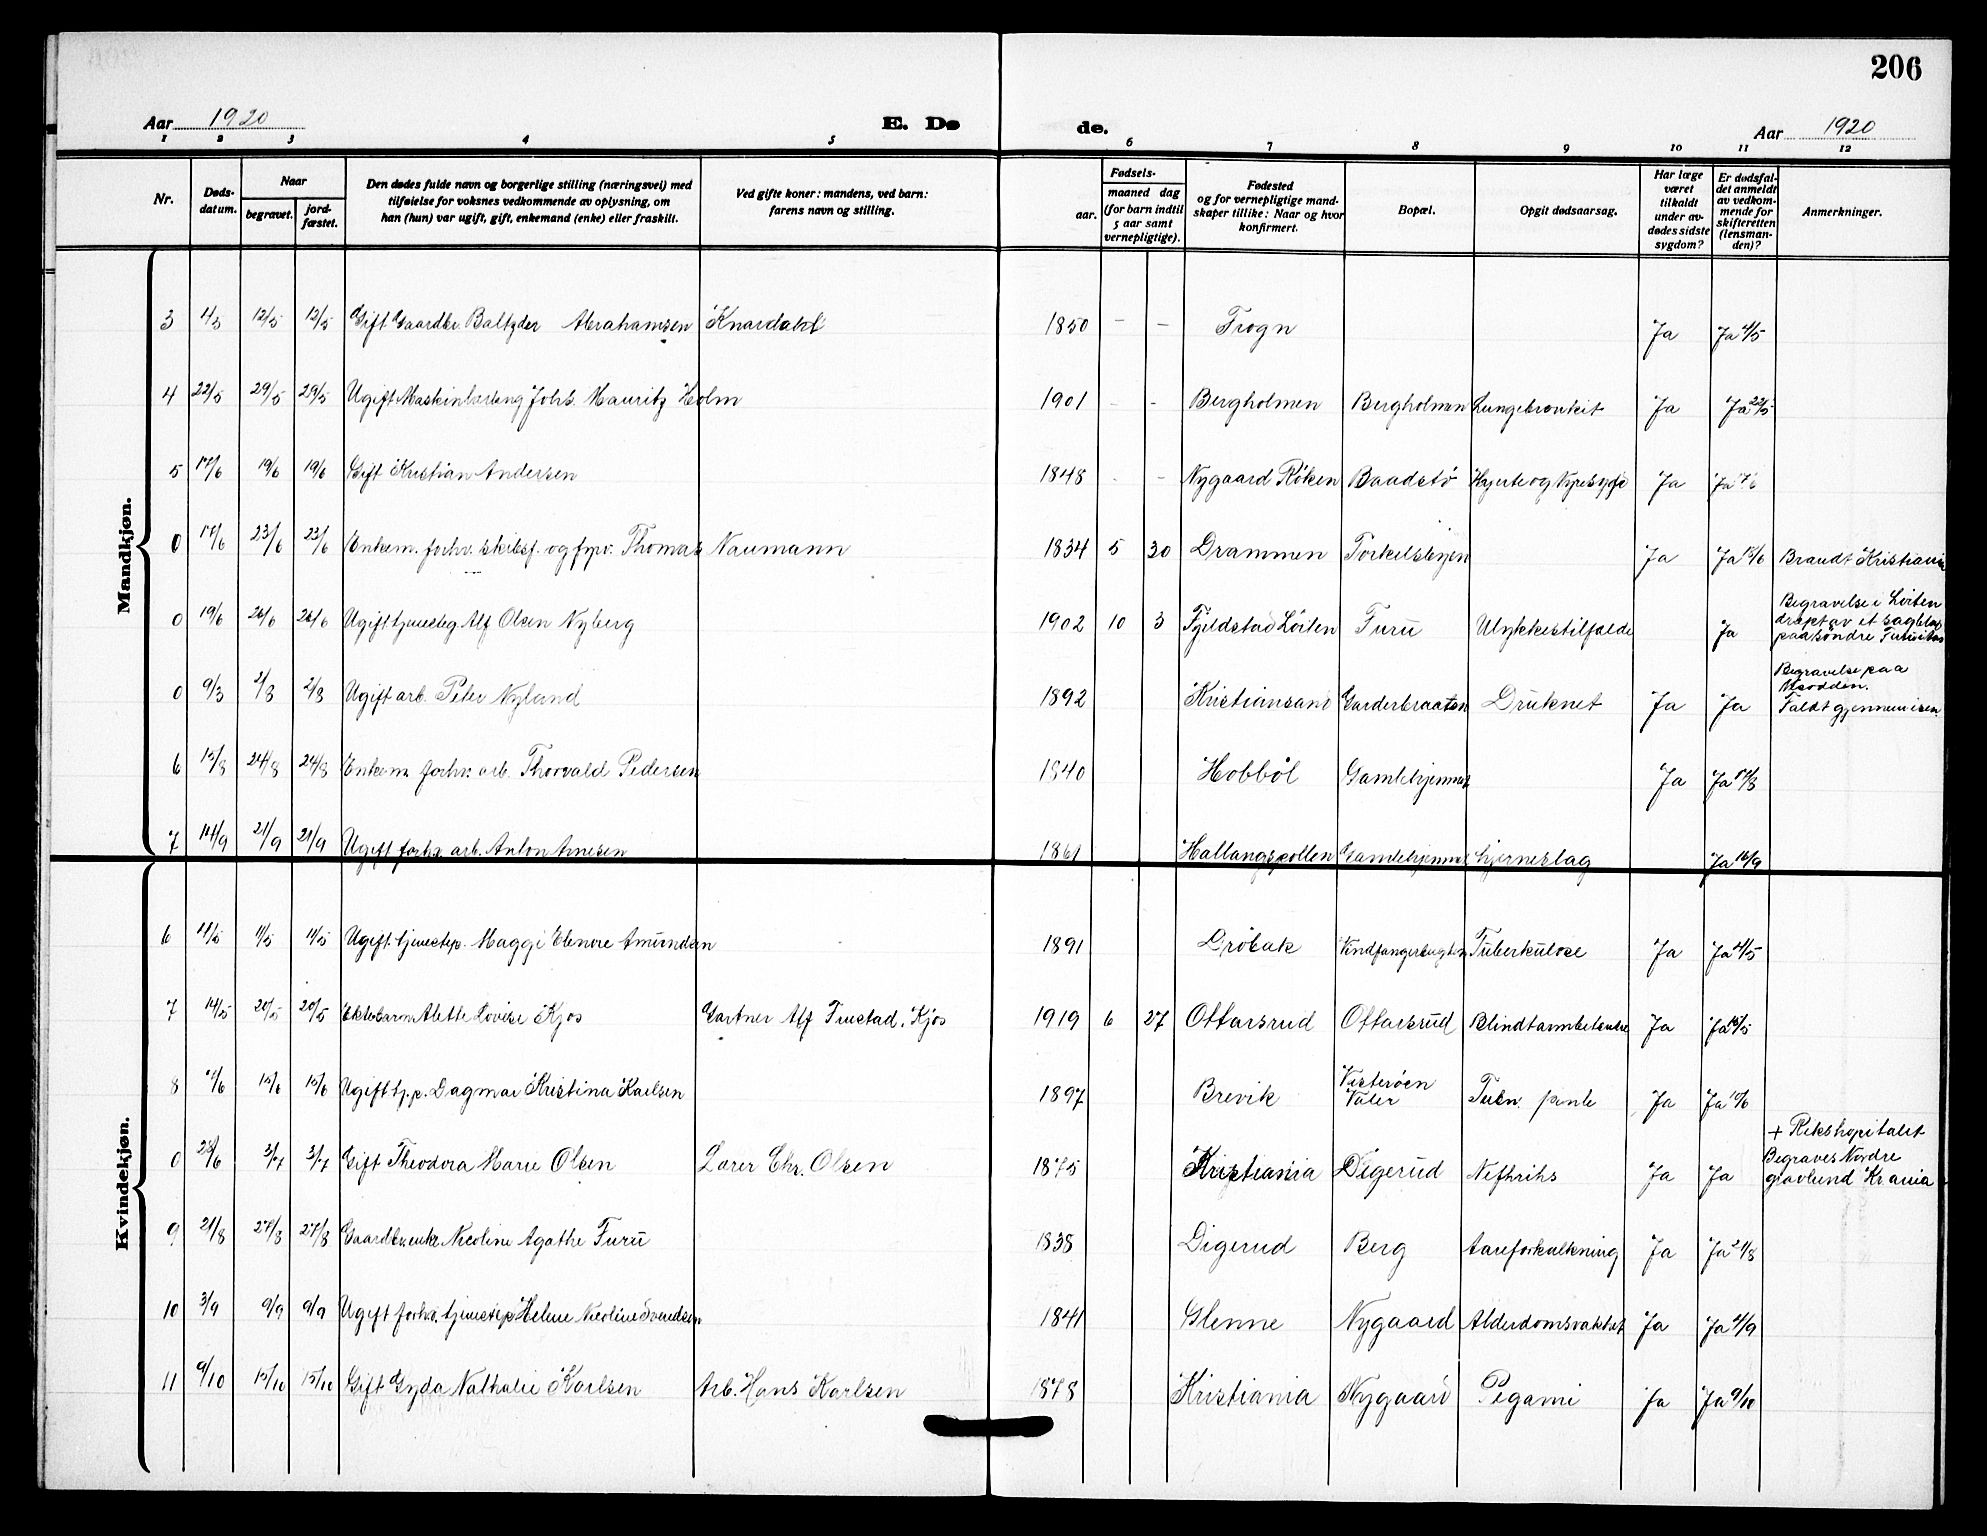 206
Aar 1920 E. Dø de. Aar 1920
1 2 3 4 5 6 7 8 9 10 11 12
Nr. Dødsdatum. Naar begravet. jordfæstet. Den dødes fulde navn og borgerlige stilling (næringsvei) med tilføielse for voksnes vedkommende av oplysning, om han (hun) var ugift, gift, enkemand (enke) eller fraskilt. Ved gifte koner: mandens, ved barn: farens navn og stilling. Fødsels- aar. maaned dag (for barn indtil 5 aar samt vernepligtige). Fødested og for vernepligtige mandskaper tillike: Naar og hvor konfirmert. Bopæl. Opgit dødsaarsag. Har læge været tilkaldt under avdødes sidste sygdom? Er dødsfaldet anmeldt av vedkommende for skifteretten (lensmanden)? Anmerkninger.
Mandkjøn.
3 4/5 12/5 12/5 Gift Gaardbr. Baltzder Abrahamsen Knardahl 1850 - - Frogn Ja Ja 4/5
4 22/5 29/5 29/5 Ugift Maskinlærling Johs. Mauritz Holm 1901 - - Bergholmen Bergholmen Lungebronkit Ja Ja 22/5
5 17/6 19/6 19/6 Gift Kristian Andersen 1848 - - Nygaard Röken Baadstö Hjerte og Nyresyge Ja Ja
0 17/6 23/6 23/6 Enkem. forhv. skibsf. og fyrv. Thomas Naumann 1834 5 30 Drammen Torkelsbyen Ja Ja 18/6 Brandt Kristiania
0 19/6 26/6 26/6 Ugift tjenesteg. Alf Olsen Nyberg 1902 10 3 Fjeldstad Löiten Furu Ulykkestilfælde Ja Begravelse i Löiten
dræpt av et sagblad
paa söndre
0 9/3 2/8 2/8 Ugift arb. Peter Nyland 1892 Kristiansand Garderbraaten Druknet Ja Ja Begravelse paa
Nesodden.
Faldt gjennem isen
6 15/8 24/8 24/8 Enkem. forhv. arb. Thorvald Pedersen 1840 Hobböl Gamlehjemmet Ja Ja
7 14/9 21/9 21/9 Ugift forhv. arb. Anton Arnesen 1861 Hallangspollen Gamlehjemmet Hjerneslag Ja 16/9
Kvindekjøn.
6 4/5 11/5 11/5 Ugift tjenestep. Maggi Elenore Amundsen 1891 Dröbak Vindfangerbugten Tuberkulose Ja Ja 4/5
7 14/5 20/5 20/5 Ektebarn Alette Lovise Kjos Gartner Alf Frustad Kjos 1919 6 27 Ottarsrud Ottarsrud Blindtarmbetændelse Ja Ja 15/5
8 15/6 15/6 Ugift tj.p. Dagmar Kristina Karlsen 1897 Brevik Vesteröen
Valer Ja Ja
0 28/6 3/7 3/7 Gift Theodora Marie Olsen Lærer Chr. Olsen 1875 Kristiania Digerud Neftritis Ja Ja + Rikshopitalet
Begraves Nordre
gravlund Kr.ania
9 21/8 27/8 27/8 Gaardbr.enke Nicoline Agathe Furu 1838 Digerud Berg Aareforkalkning Ja Ja 21/8
10 3/9 9/9 9/9 Ugift forhv. tjenestep. Helene Nicoline Svendsen 1841 Glenne Nygaard Alderdomsvakhet Ja Ja 4/9
11 9/10 15/10 15/10 Gift Gyda Nathalie Karlsen Arb. Hans Karlsen 1878 Kristiania Nygaard Ja Ja 9/10